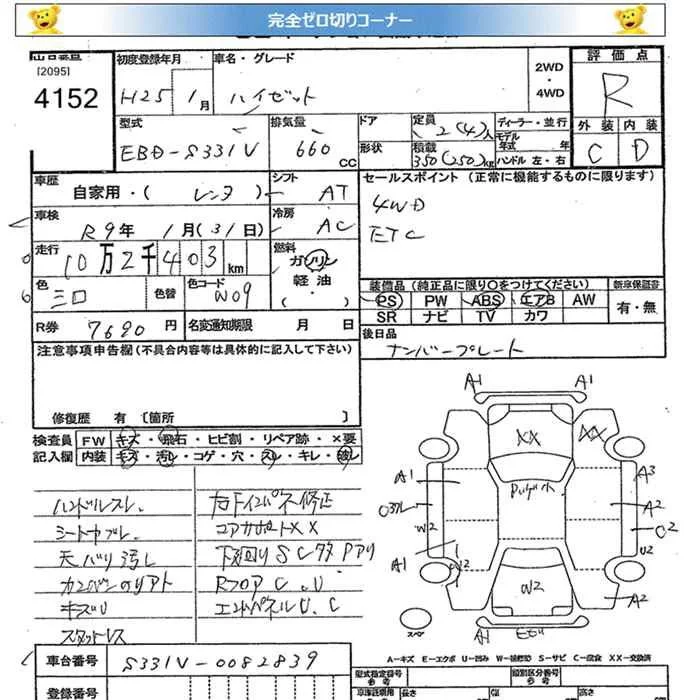 完全ゼロ切りコーナー
[2095]
4152
初度登録年月
H25 1月
車名・グレード
ハイゼット
2WD
・
4WD
評価点
R
外装 内装
C D
型式
EBD-S331V
排気量
660 CC
ドア
形状
定員
2(4)人
積載
350(250)kg
ディーラー・並行
モデル年式 年
ハンドル 左・右
車歴
自家用・( レンタ )
シフト
AT
車検
R9年 1月(31日)
冷房
AC
走行
10万2千403km
燃料
ガソリン
軽油
( ・ )
色
シロ
色替
色コード
W09
R券 7690円
名変通知期限 月 日
セールスポイント (正常に機能するものに限ります)
4WD
ETC
装備品(純正品に限り〇をつけてください)
PS PW ABS エアB AW
SR ナビ TV カワ
新車保証書
有・無
後日品
ナンバープレート
注意事項申告欄(不具合内容等は具体的に記入して下さい)
修復歴 有 〔箇所 〕
検査員記入欄
FW キズ・飛石・ヒビ割・リペア跡・×要
内装 キズ・汚レ・コゲ・穴・スレ・キレ・破レ
ハンドルスレ、
シートヤブレ、
天バリ汚レ
キズU
スタットレス
コアサポートXX
下廻りSCサタPアリ
RフロアC、U
エンドパネルU、C
A1 A1
XX XX
A1 A3
W2 A2
A1 U2
W2 A2
A1
スペア
A-キズ E-エクボ U-凹み W-補修跡 S-サビ C-腐食 XX-交換済
車台番号
S331V-0082839
登録番号
型式指定番号
参考
類別区分番号
参考
長さ
幅
高さ